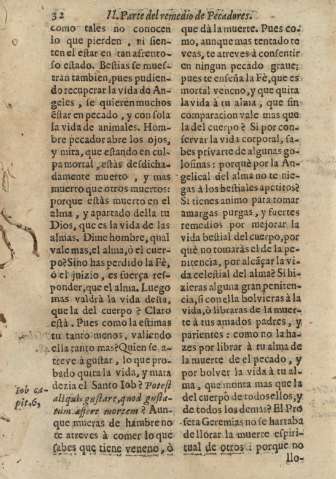 32 II. Parte del remedio de Pecadores.
como tales no conocen
lo que pierden, ni sien-
ten el estar en tan afrento-
so estado. Bestias se mues-
tran tambien, pues pudien-
do recuperar la vida de An-
geles, se quieren muchos
estar en pecado, y con sola
la vida de animales. Hom-
bre pecador abre los ojos,
y mira, que estando en cul-
pa mortal, estàs desdicha-
damente muerto, y mas
muerto que otros muertos:
porque estàs muerto en el
alma, y apartado della tu
Dios, que es la vida de las
almas. Dime hombre, qual
vale mas, el alma, ò el cuer-
po? Sino has perdido la Fè,
ò el juizio, es fuerça res-
ponder, que el alma. Luego
mas valdrà la vida desta,
que la del cuerpo? Claro
està. Pues como la estimas
tu tanto menos, valiendo
ella tanto mas? Quien se a-
treve à gustar, lo que pro-
bado quita la vida, y mata
dezia el Santo Iob? Potest
aliquis gustare, quod gusta-
tum affert mortem? Aun-
que mueras de hambre no
te atreves à comer lo que
sabes que tiene veneno, ò
Iob ca-
pit. 6.
que dà la muerte. Pues co-
mo, aunque mas tentado te
veas, te atreves à consentir
en ningun pecado grave;
pues te enseña la Fè, que es
mortal veneno, y que quita
la vida à tu alma, que sin
comparacion vale mas que
la del cuerpo? Si por con-
servar la vida corporal, sa-
bes privarte de algunas go-
losinas: porquè por la An-
gelical del alma no te nie-
gas à los bestiales apetitos?
Si tienes animo para tomar
amargas purgas, y fuertes
remedios por mejorar la
vida bestial del cuerpo, por
què no tomaràs el de la pe-
nitencia, por alcãçar la vi-
da celestial del alma? Si hi-
zieras alguna gran peniten-
cia, si con ella bolvieras à la
vida, ò libraras de la muer-
te à tus amados padres, y
parientes: como no la ha-
zes por librar à tu alma de
la muerte de el pecado, y
por bolver la vida à tu al-
ma, que monta mas que la
del cuerpo de todos ellos, y
de todos los demàs? El Pro
feta Geremias no se hartaba
de llorar la muerte espiri-
tual de otros: porque no
llo-